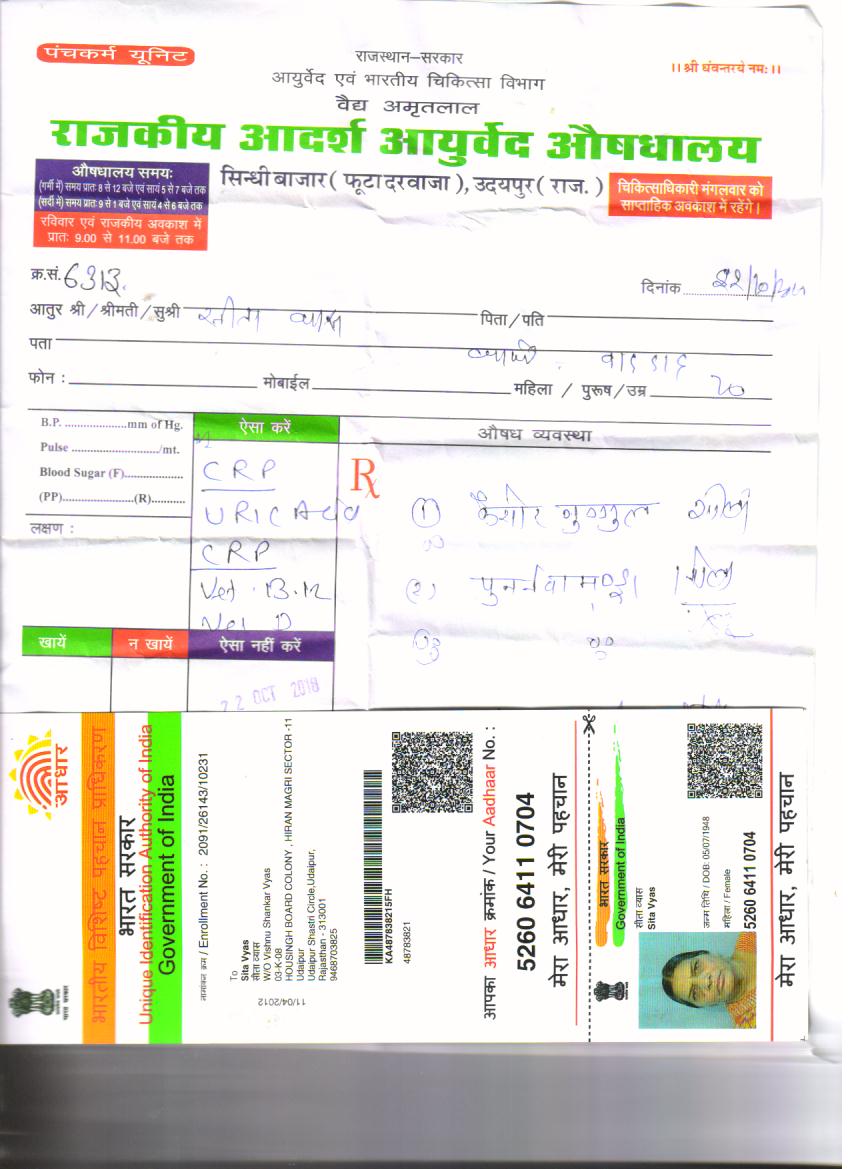 पंचकर्म यूनिट
राजस्थान–सरकार
।। श्री धंवन्तरये नमः ।।
आयुर्वेद एवं भारतीय चिकित्सा विभाग
वैद्य अमृतलाल
राजकीय आदर्श आयुर्वेद औषधालय
औषधालय समयः
(गर्मी में) समय प्रातः 8 से 12 बजे एवं सायं 5 से 7 बजे तक
(सर्दी में) समय प्रातः 9 से 1 बजे एवं सायं 4 से 6 बजे तक
रविवार एवं राजकीय अवकाश में
प्रातः 9.00 से 11.00 बजे तक
सिन्धी बाजार ( फूटा दरवाजा ), उदयपुर ( राज. )
चिकित्साधिकारी मंगलवार को
साप्ताहिक अवकाश में रहेंगे।
क्र.सं. 6313.
दिनांक
आतुर श्री / श्रीमती / सुश्री सीता व्यास पिता / पति
पता
फोन : मोबाईल महिला / पुरूष / उम्र 70
B.P. mm of Hg.
Pulse /mt.
Blood Sugar (F)
(PP) (R)
लक्षण :
ऐसा करें
CRP
URIC Acid
CRP
Vit. B.12
Vit D
औषध व्यवस्था
Rx
(1) कैशोर गुग्गुल
(2) पुनर्नवा मण्डूर
खायें
न खायें
ऐसा नहीं करें
22 OCT 2018
आधार
भारतीय विशिष्ट पहचान प्राधिकरण
भारत सरकार
Unique Identification Authority of India
Government of India
भारत सरकार
नामांकन क्रम / Enrollment No. : 2091/26143/10231
To
Sita Vyas
सीता व्यास
W/O Vishnu Shankar Vyas
03-K-08
HOUSINGH BOARD COLONY , HIRAN MAGRI SECTOR -11
Udaipur
Udaipur Shastri Circle,Udaipur,
Rajasthan - 313001
9468703825
11/04/2012
KA487838215FH
48783821
आपका आधार क्रमांक / Your Aadhaar No. :
5260 6411 0704
मेरा आधार, मेरी पहचान
भारत सरकार
Government of India
सीता व्यास
Sita Vyas
जन्म तिथि / DOB: 05/07/1948
महिला / Female
5260 6411 0704
मेरा आधार, मेरी पहचान